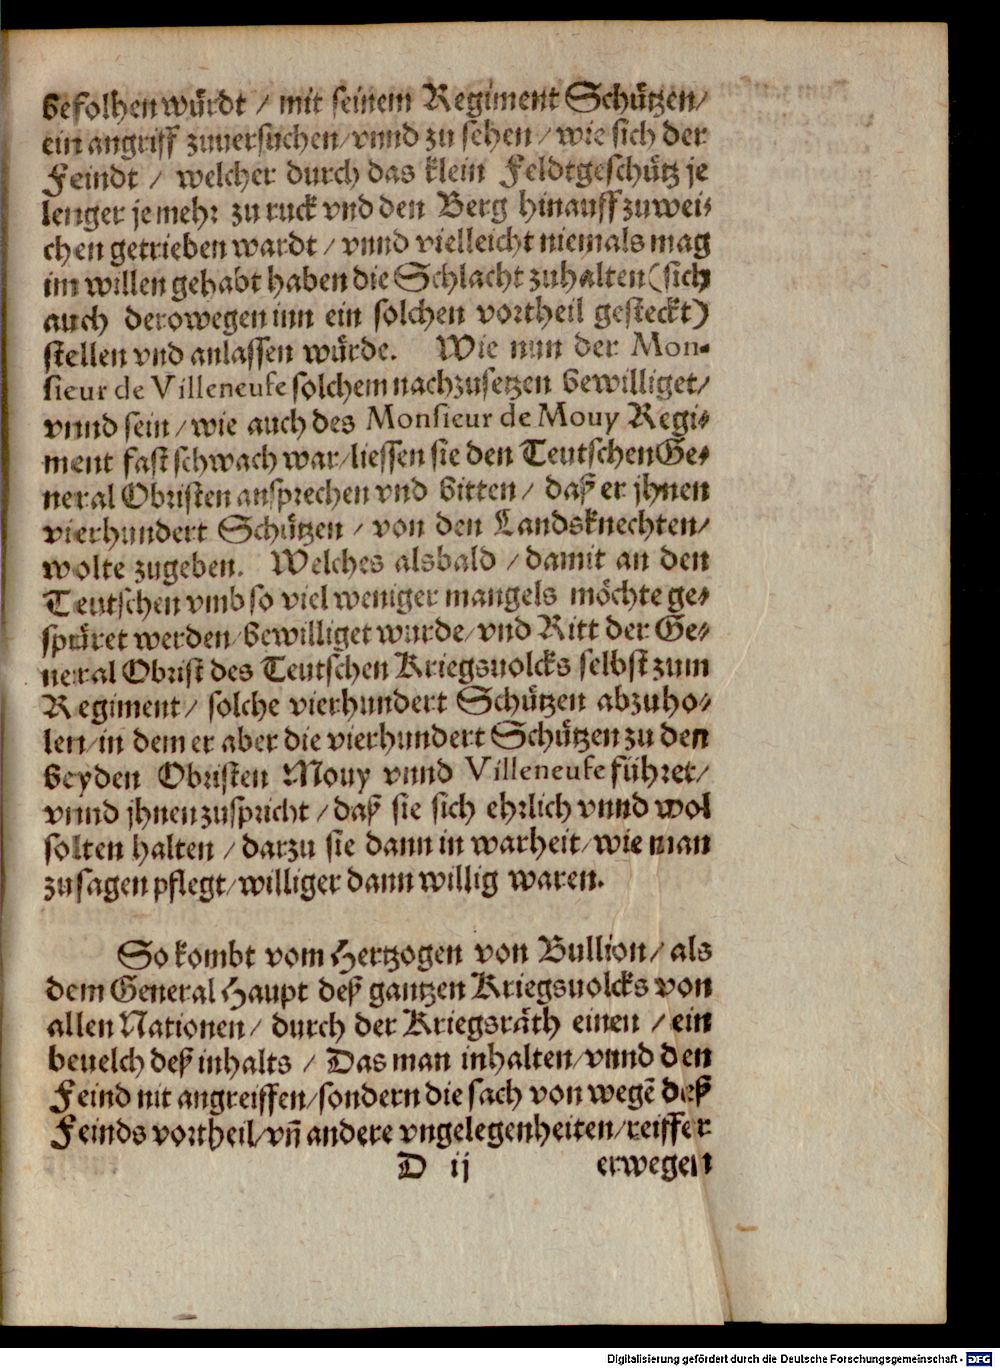 befolhen würdt / mit seinem Regiment Schützen/
ein angriff zuuersuchen/vnnd zu sehen / wie sich der
Feindt / welcher durch das klein Feldtgeschütz je
lenger je mehr zu ruck vnd den Berg hinauff zuwei-
chen getrieben wardt / vnnd vielleicht niemals mag
im willen gehabt haben die Schlacht zuhalten (sich
auch derowegen inn ein solchen vortheil gesteckt)
stellen vnd anlassen würde. Wie nun der Mon-
sieur de Villeneufe solchem nachzusetzen bewilliget/
vnnd sein / wie auch des Monsieur de Mouy Regi-
ment fast schwach war/liessen sie den Teutschen Ge-
neral Obristen ansprechen vnd bitten / daß er jhnen
vierhundert Schützen / von den Landsknechten/
wolte zugeben. Welches alsbald / damit an den
Teutschen vmb so viel weniger mangels möchte ge-
spüret werden/bewilliget wurde/vnd Ritt der Ge-
neral Obrist des Teutschen Kriegsuolcks selbst zum
Regiment / solche vierhundert Schützen abzuho-
len/in dem er aber die vierhundert Schützen zu den
beyden Obristen Mouy vnnd Villeneufe führet/
vnnd jhnen zuspricht / daß sie sich ehrlich vnnd wol
solten halten / darzu sie dann in warheit/wie man
zusagen pflegt/williger dann willig waren.
So kombt vom Hertzogen von Bullion / als
dem General Haupt deß gantzen Kriegsuolcks von
allen Nationen / durch der Kriegsräth einen / ein
beuelch deß inhalts / Das man inhalten/vnnd den
Feind nit angreiffen/sondern die sach von wegẽ deß
Feinds vortheil/vñ andere vngelegenheiten/reiffer
D ij erwegen
Digitalisierung gefördert durch die Deutsche Forschungsgemeinschaft - DFG